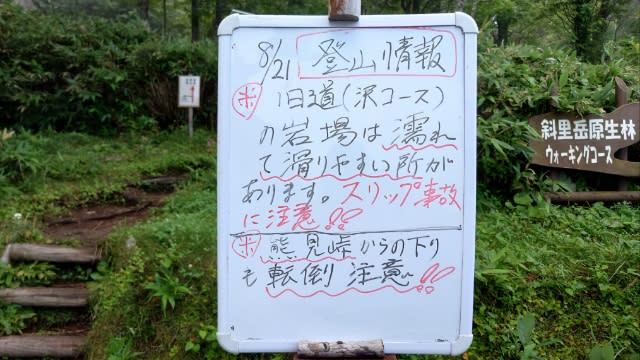 8/21 登山情報
ポ 旧道(沢コース)
の岩場は濡れ
て滑りやすい所が
あります。スリップ事故
に注意!!
ポ 熊見峠からの下り
も転倒注意!!
斜里岳原生林
ウォーキングコース